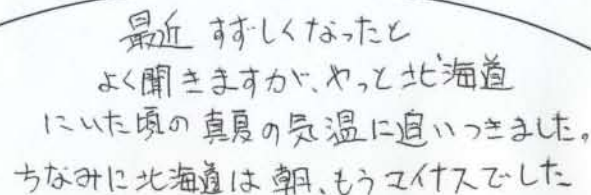 最近 すずしくなったと
よく聞きますが、やっと北海道
にいた頃の真夏の気温に追いつきました。
ちなみに北海道は朝、もうマイナスでした